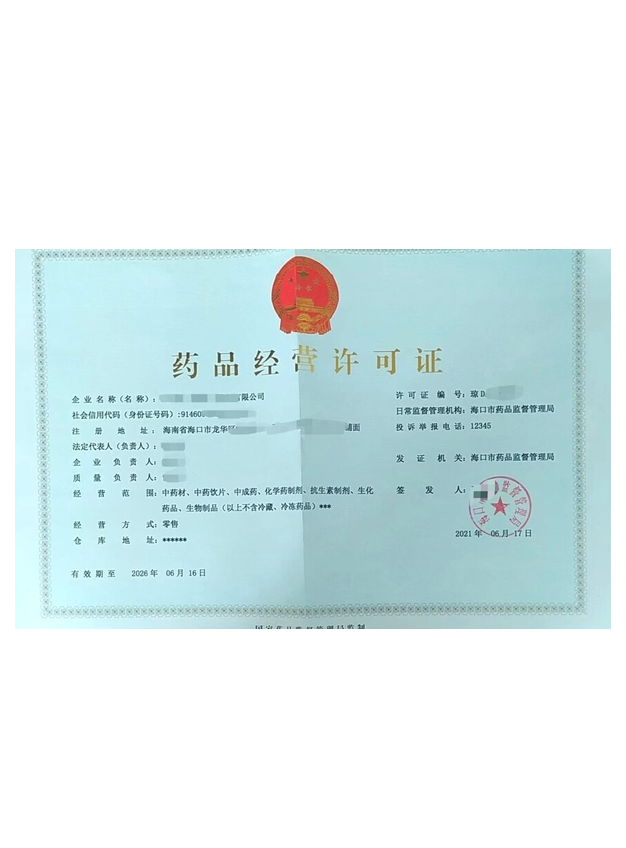 药品经营许可证
企业名称（名称）： 有限公司
许可证编号：琼D
社会信用代码（身份证号码）:91460
日常监督管理机构：海口市药品监督管理局
注册地址：海南省海口市龙华区 铺面
投诉举报电话：12345
法定代表人（负责人）：
企业负责人：
发证机关：海口市药品监督管理局
质量负责人：
经营范围：中药材、中药饮片、中成药、化学药制剂、抗生素制剂、生化
药品、生物制品（以上不含冷藏、冷冻药品）***
签发人：
经营方式：零售
仓库地址：******
2021年 06月 17日
有效期至 2026年 06月 16日
国家药品监督管理局监制